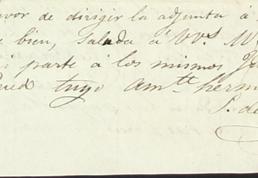 vor de dirigir la adjunta á
bien, Salada á VVs.
i parte á los mismos
tuyo am.te herm
P. de